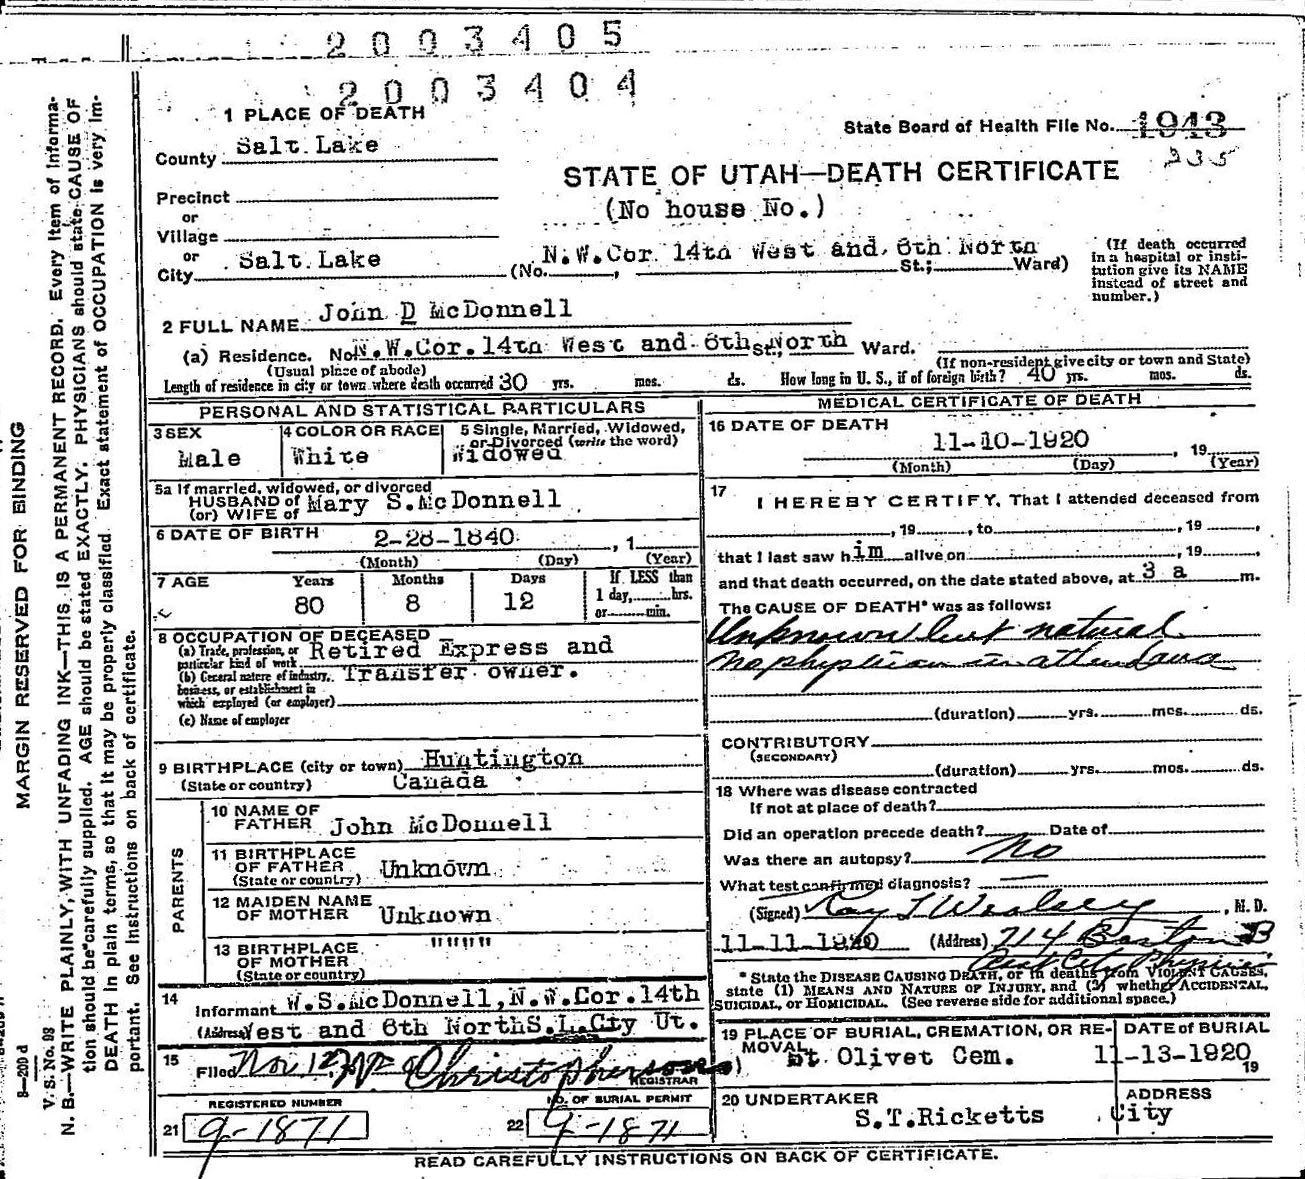 2003405
2003404
1 PLACE OF DEATH
State Board of Health File No. 1943
235
County Salt Lake
STATE OF UTAH—DEATH CERTIFICATE
Precinct
(No house No.)
or
Village
or
City Salt Lake (No. N.W.Cor. 14th West and 6th North St.; Ward)
(If death occurred in a hospital or institution give its NAME instead of street and number.)
2 FULL NAME John D McDonnell
(a) Residence. No. N.W.Cor.14th West and 6th St., North Ward.
(Usual place of abode) (If non-resident give city or town and State)
Length of residence in city or town where death occurred 30 yrs. mos. ds. How long in U. S., if of foreign birth? 40 yrs. mos. ds.
PERSONAL AND STATISTICAL PARTICULARS
3 SEX Male
4 COLOR OR RACE White
5 Single, Married, Widowed, or Divorced (write the word) Widowed
5a If married, widowed, or divorced
HUSBAND of
(or) WIFE of Mary S.McDonnell
6 DATE OF BIRTH 2-28-1840 , 1
(Month) (Day) (Year)
7 AGE Years Months Days If LESS than
80 8 12 1 day, hrs.
or min.
8 OCCUPATION OF DECEASED
(a) Trade, profession, or particular kind of work Retired Express and
(b) General nature of industry, business, or establishment in which employed (or employer) Transfer owner.
(c) Name of employer
9 BIRTHPLACE (city or town) Huntington
(State or country) Canada
PARENTS
10 NAME OF FATHER John McDonnell
11 BIRTHPLACE OF FATHER (State or country) Unknown
12 MAIDEN NAME OF MOTHER Unknown
13 BIRTHPLACE OF MOTHER (State or country) """"""
14
Informant W.S.McDonnell,N.W.Cor.14th
(Address) West and 6th NorthS.L.Cty Ut.
15
Filed Nov 12, Christopherson
REGISTRAR
REGISTERED NUMBER
21 9-1871
NO. OF BURIAL PERMIT
22 9-1871
MEDICAL CERTIFICATE OF DEATH
16 DATE OF DEATH
11-10-1920 , 19
(Month) (Day) (Year)
17
I HEREBY CERTIFY, That I attended deceased from
, 19 , to , 19 ,
that I last saw him alive on , 19 ,
and that death occurred, on the date stated above, at 3 a m.
The CAUSE OF DEATH* was as follows:
Unknown but natural
No physician in attendance
(duration) yrs. mos. ds.
CONTRIBUTORY
(SECONDARY)
(duration) yrs. mos. ds.
18 Where was disease contracted
If not at place of death?
Did an operation precede death? Date of
Was there an autopsy? No
What test confirmed diagnosis?
(Signed) , M. D.
11-11-1920 (Address) 714 Boston B
City Physician
* State the DISEASE CAUSING DEATH, or in deaths from VIOLENT CAUSES, state (1) MEANS AND NATURE OF INJURY, and (2) whether ACCIDENTAL, SUICIDAL, or HOMICIDAL. (See reverse side for additional space.)
19 PLACE OF BURIAL, CREMATION, OR REMOVAL Mt Olivet Cem.
DATE of BURIAL
11-13-1920
19
20 UNDERTAKER
S.T.Ricketts
ADDRESS
City
READ CAREFULLY INSTRUCTIONS ON BACK OF CERTIFICATE.
MARGIN RESERVED FOR BINDING
V. S. No. 98
N. B.—WRITE PLAINLY, WITH UNFADING INK—THIS IS A PERMANENT RECORD. Every item of information should be carefully supplied. AGE should be stated EXACTLY. PHYSICIANS should state CAUSE OF DEATH in plain terms, so that it may be properly classified. Exact statement of OCCUPATION is very important. See instructions on back of certificate.